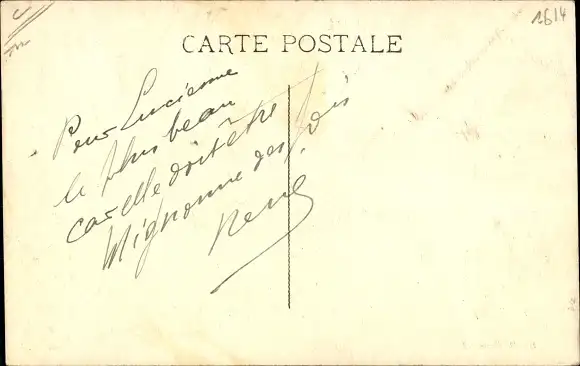 1614
CARTE POSTALE
Pour Lucienne
le plus beau
car elle doit être
Mignonne des fois
René